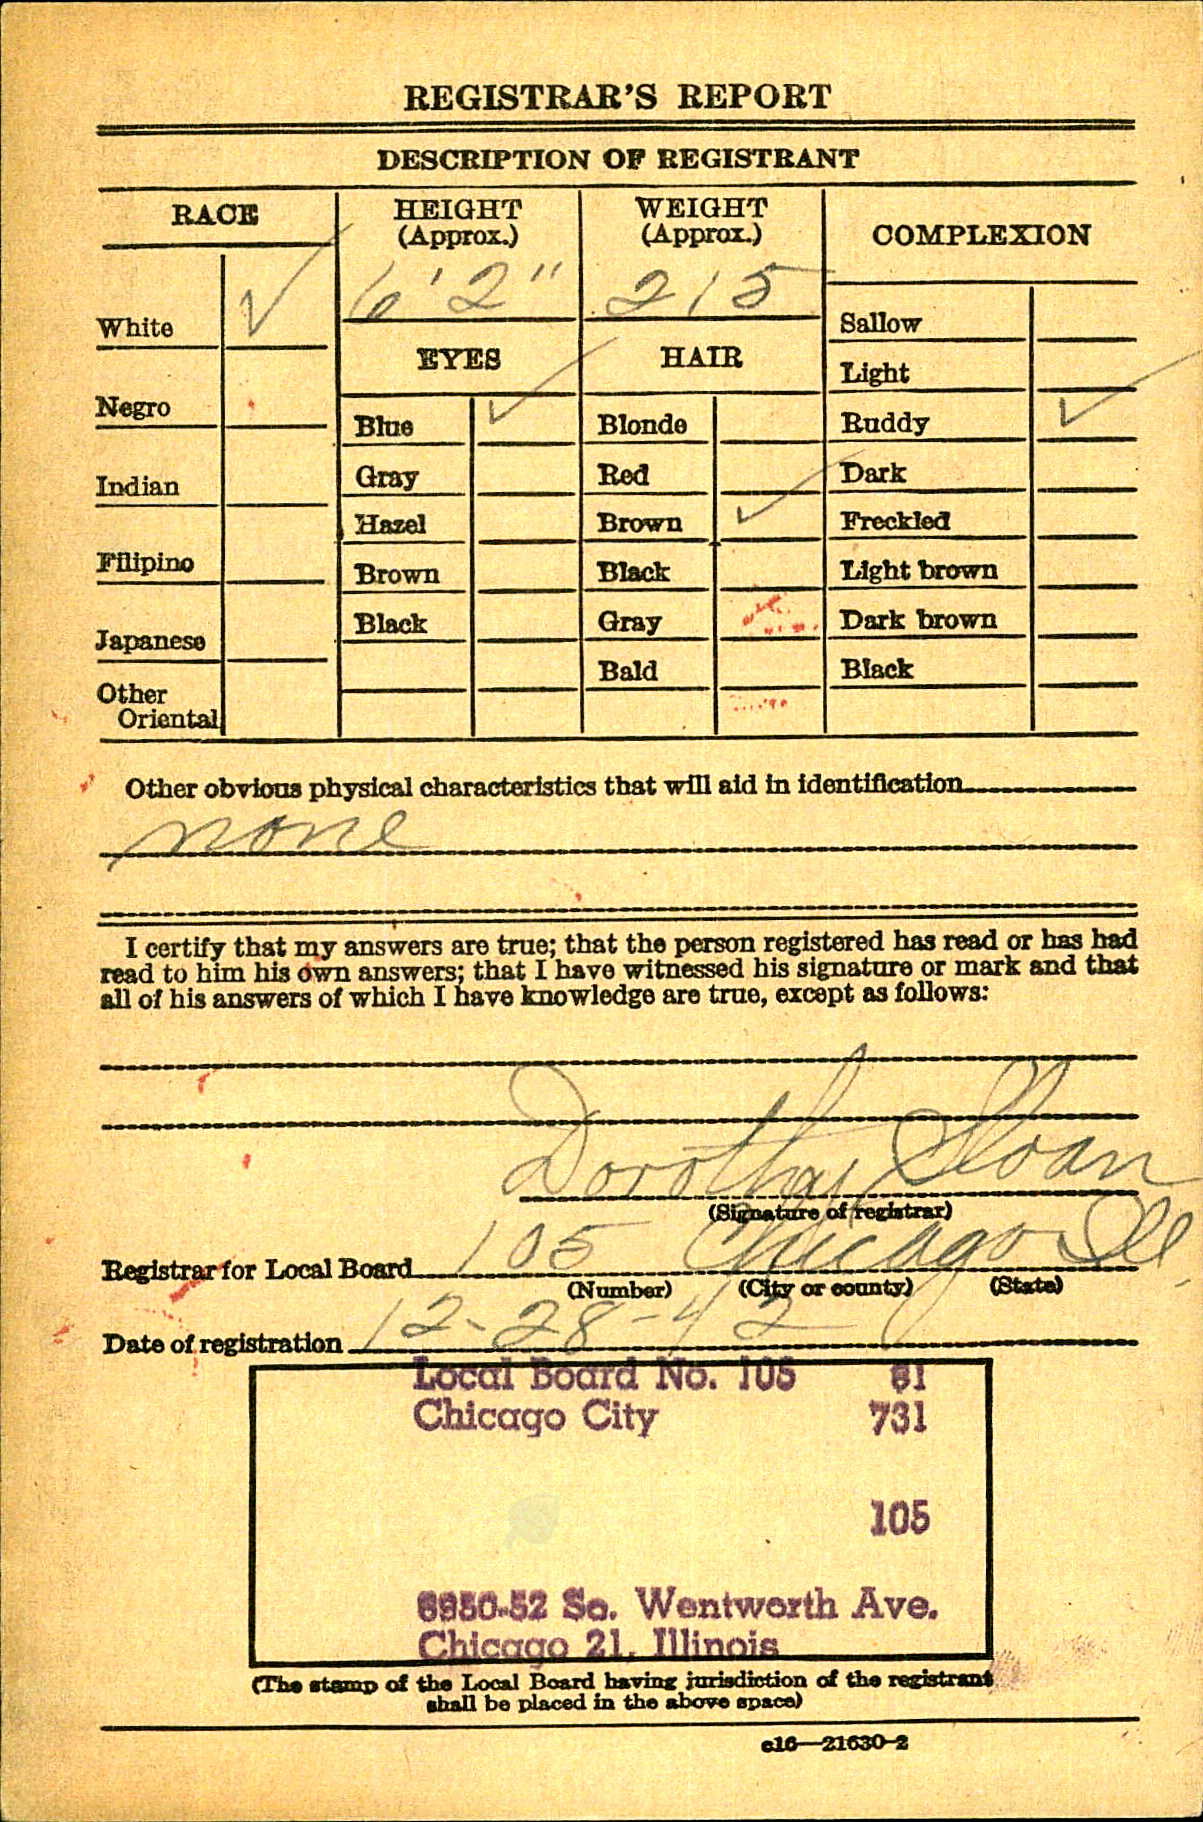 REGISTRAR'S REPORT
DESCRIPTION OF REGISTRANT
RACE
White ✓
Negro
Indian
Filipino
Japanese
Other
Oriental
HEIGHT
(Approx.)
6' 2"
WEIGHT
(Approx.)
215
EYES
Blue ✓
Gray
Hazel
Brown
Black
HAIR
Blonde
Red
Brown ✓
Black
Gray
Bald
COMPLEXION
Sallow
Light
Ruddy ✓
Dark
Freckled
Light brown
Dark brown
Black
Other obvious physical characteristics that will aid in identification
none
I certify that my answers are true; that the person registered has read or has had
read to him his own answers; that I have witnessed his signature or mark and that
all of his answers of which I have knowledge are true, except as follows:
Dorothy Sloan
(Signature of registrar)
Registrar for Local Board 105 Chicago Ill.
(Number) (City or county) (State)
Date of registration 12-28-42
Local Board No. 105 61
Chicago City 731
105
6950-52 So. Wentworth Ave.
Chicago 21, Illinois
(The stamp of the Local Board having jurisdiction of the registrant
shall be placed in the above space)
c16—21630-2